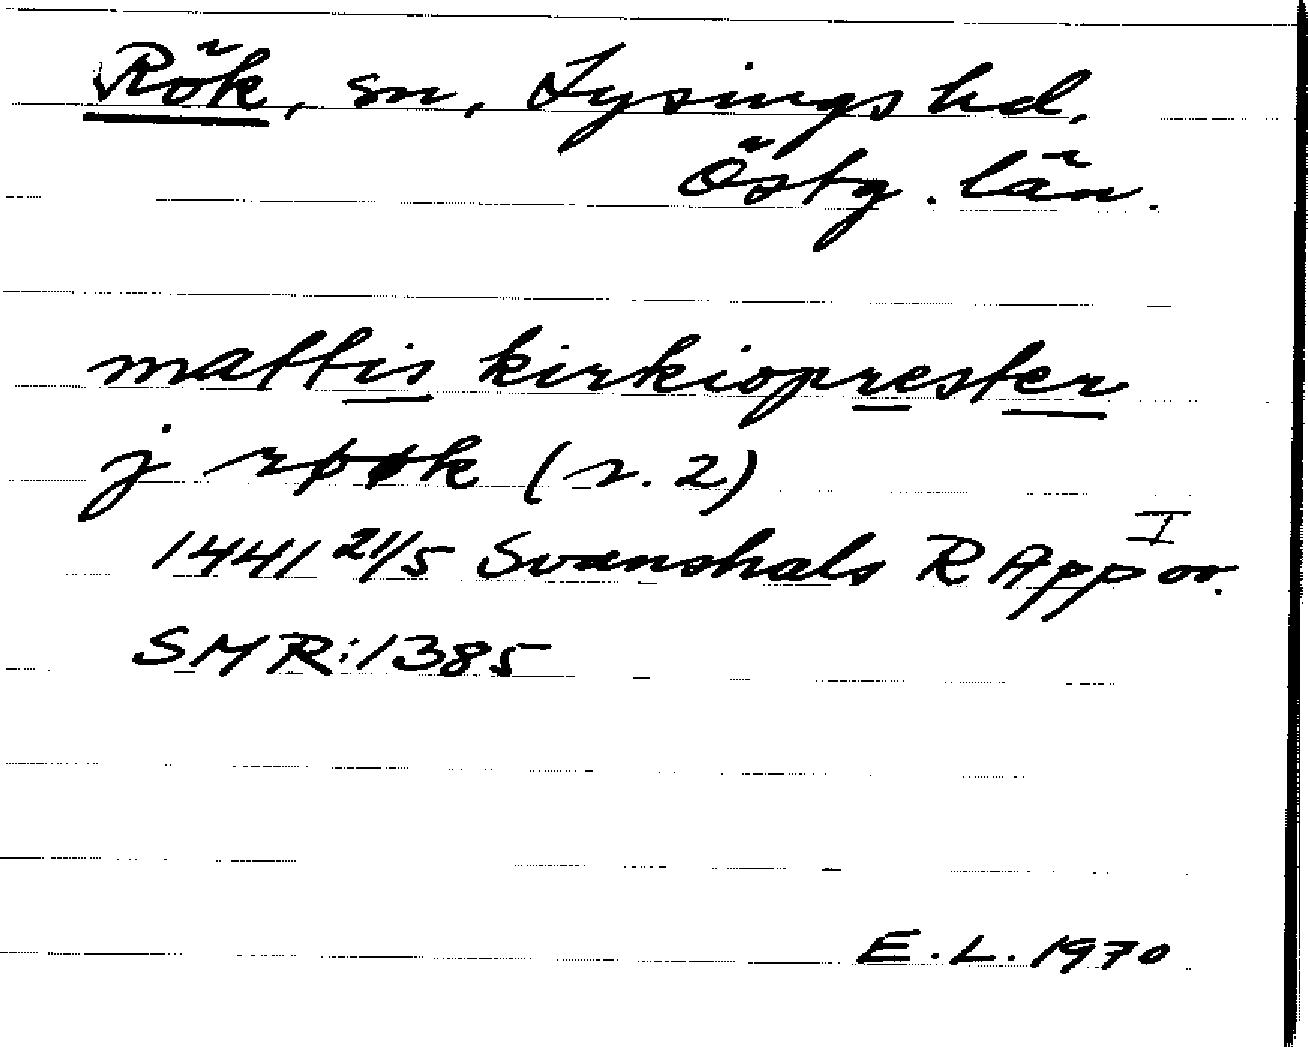 Rök, sn, Lysings hd,
Östg. län.
mattis kirkioprester
j røøk (r. 2)
1441 21/5 Svanshals RAppor. I
SMR: 1385
E. L. 1970